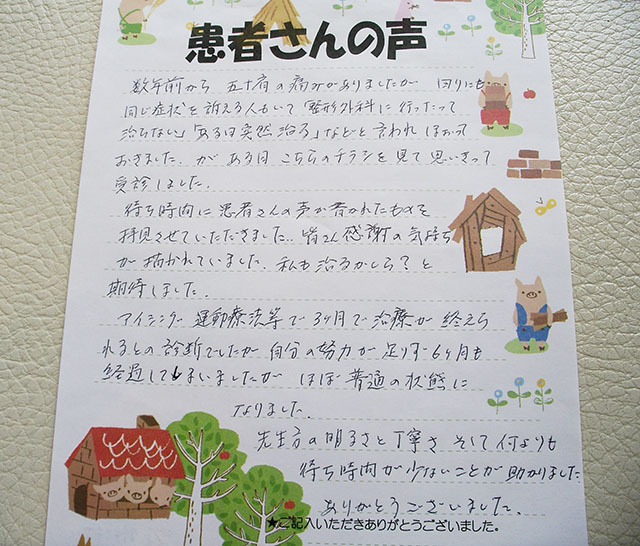 患者さんの声
数年前から 五十肩の痛みがありましたが 回りにも
同じ症状を訴える人もいて「整形外科に行ったって
治らない」「ある日突然治る」などと言われ ほおって
おきました。が ある日 こちらのチラシを見て 思いきって
受診しました。
待ち時間に患者さんの声が書かれたものを
拝見させていただきました。皆さん感謝の気持ち
が描かれていました。私も治るかしら?と
期待しました。
アイシング 運動療法等で3ヶ月で治療が終えら
れるとの診断でしたが 自分の努力が足りず6ヶ月も
経過してしまいましたが ほぼ普通の状態に
なりました。
先生方の明るさと丁寧さ そして何よりも
待ち時間が少ないことが助かりました
ありがとうございました。
★ご記入いただきありがとうございました。